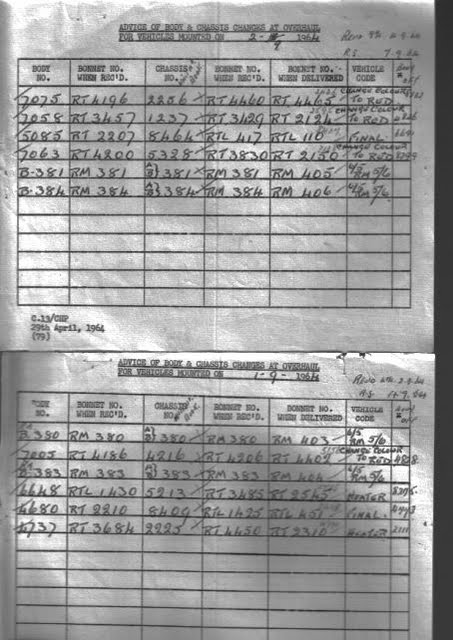 ADVICE OF BODY & CHASSIS CHANGES AT OVERHAUL
FOR VEHICLES MOUNTED ON 2-9 1964
7.9.64
BODY NO. BONNET NO. WHEN REC'D. CHASSIS NO. BONNET NO. WHEN REC'D. BONNET NO. WHEN DELIVERED VEHICLE CODE Body off
7075 RT 4196 2256 RT 4460 RT 4465 CHANGE COLOUR TO RED
7058 RT 3457 1237 RT 3429 RT 2124 CHANGE COLOUR TO RED
5085 RT 2207 8464 RTL 417 RTL 110 FINAL
7063 RT 4200 5328 RT 3830 RT 2150 CHANGE COLOUR TO RED
B-381 RM 381 A/B} 381 RM 381 RM 405 4/5 RM 5/6
B-384 RM 384 A/B} 384 RM 384 RM 406 4/5 RM 5/6
C.13/CHP
29th April, 1964
(79)
ADVICE OF BODY & CHASSIS CHANGES AT OVERHAUL
FOR VEHICLES MOUNTED ON 1-9- 1964
BODY NO. BONNET NO. WHEN REC'D. CHASSIS NO. BONNET NO. WHEN REC'D. BONNET NO. WHEN DELIVERED VEHICLE CODE Body off
B-380 RM 380 A/B} 380 RM 380 RM 403 4/5 RM 5/6
7005 RT 4186 4216 RT 4206 RT 4407 CHANGE COLOUR TO RED 4828
B-383 RM 383 A/B} 383 RM 383 RM 404 4/5 RM 5/6
6648 RTL 1430 5213 RT 3485 RT 2545 HEATER
4680 RT 2210 8409 RTL 1425 RTL 451 FINAL
4737 RT 3684 2225 RT 4450 RT 2310 HEATER